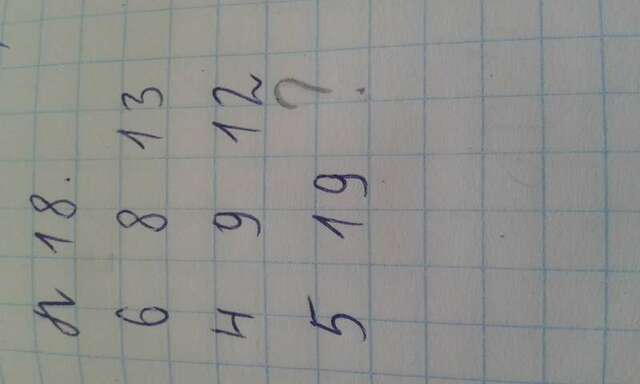 № 18.
6 8 13
4 9 12
5 19 ?